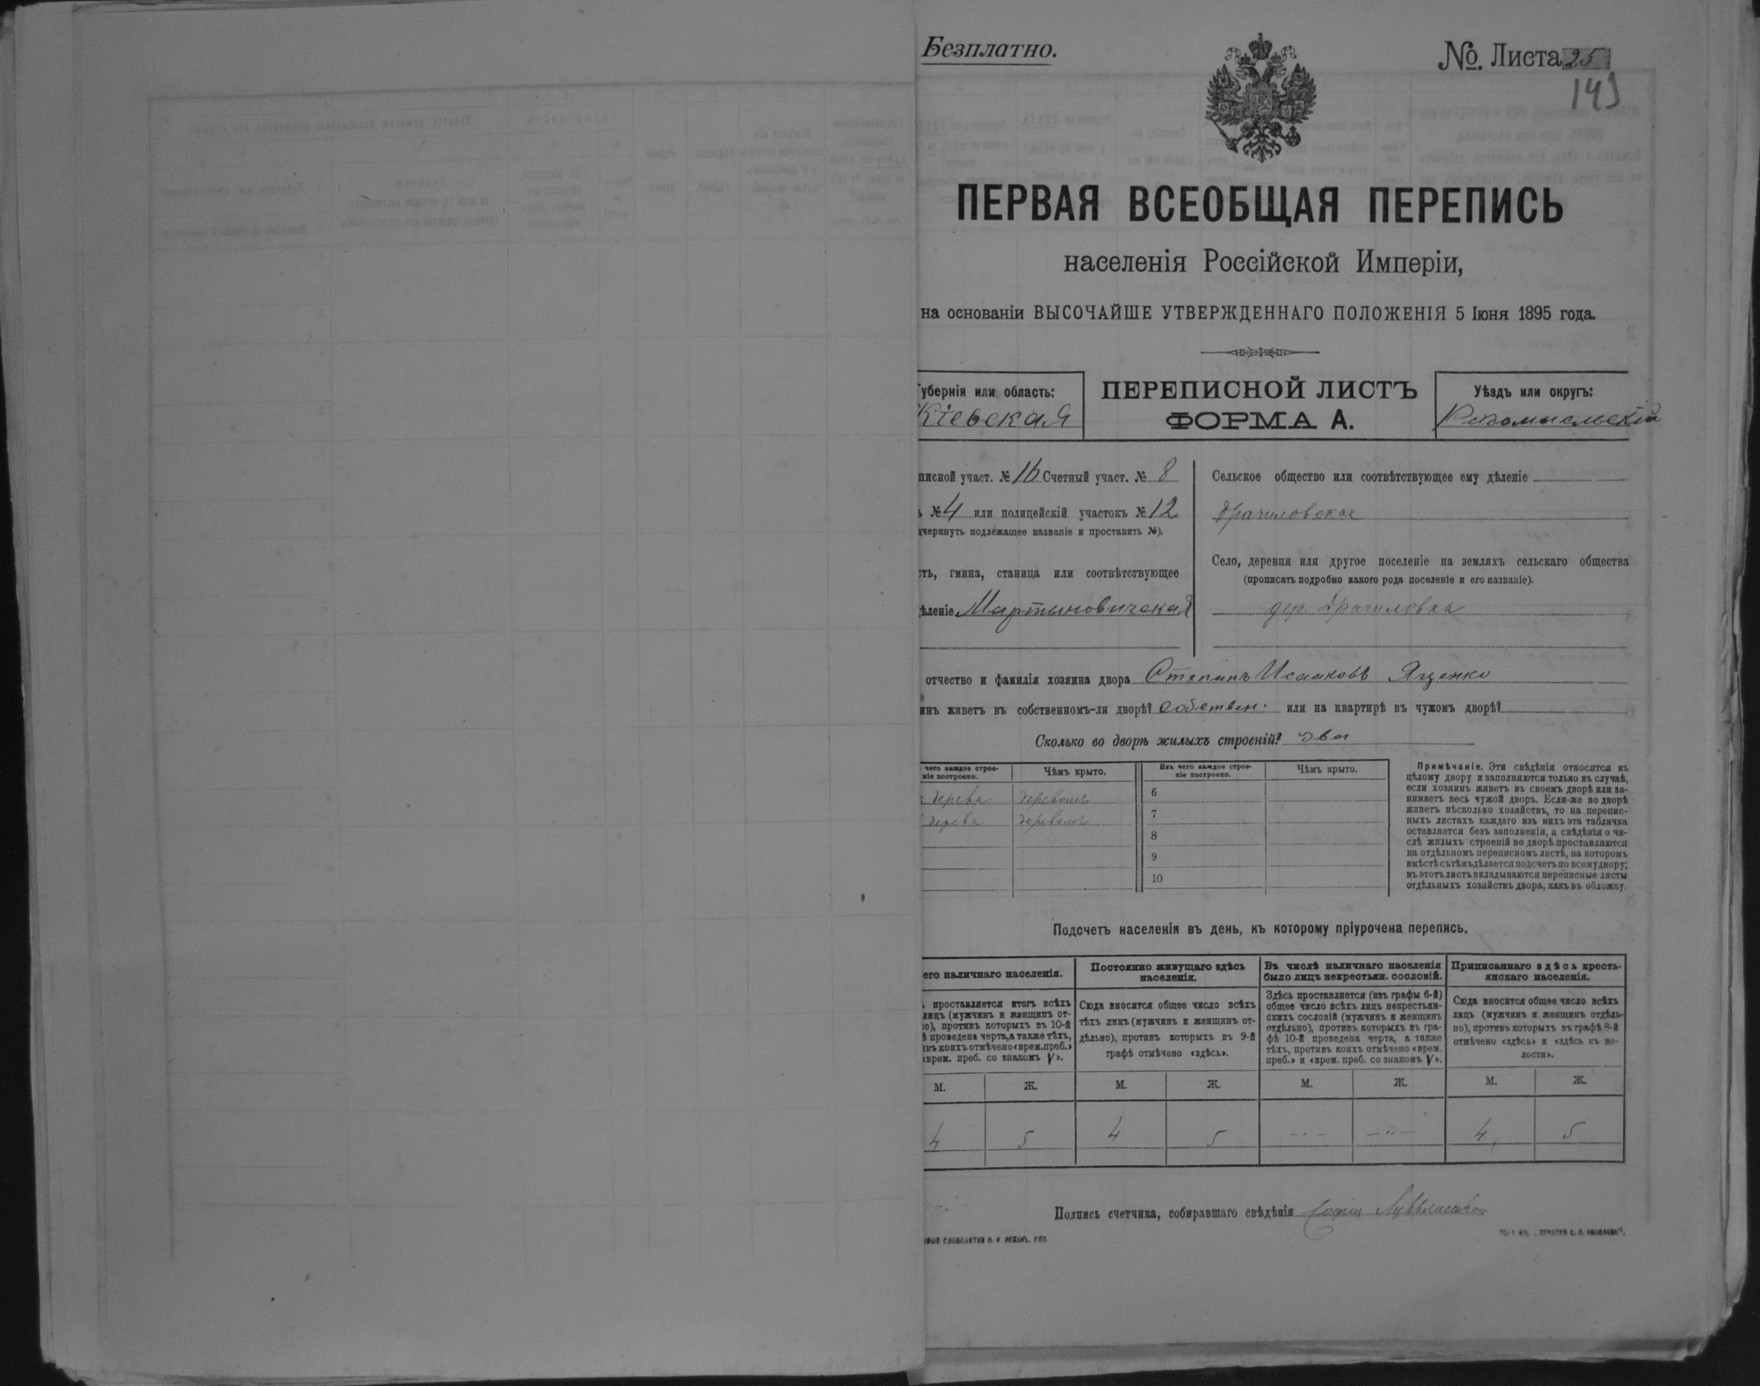 Безплатно.
№. Листа 25
143
ПЕРВАЯ ВСЕОБЩАЯ ПЕРЕПИСЬ
населенія Россійской Имперіи,
на основаніи ВЫСОЧАЙШЕ УТВЕРЖДЕННАГО ПОЛОЖЕНІЯ 5 Іюня 1895 года.
Губернія или область:
Кіевская
ПЕРЕПИСНОЙ ЛИСТЪ
ФОРМА А.
Уѣздъ или округъ:
Радомысльскій
писной участ. № 16 Счетный участ. № 8
№ 4 или полицейскій участокъ № 12
черкнуть подлежащее названіе и проставить №).
ть, гмина, станица или соотвѣтствующее
ѣленіе Мартыновичская
Сельское общество или соотвѣтствующее ему дѣленіе
Село, деревня или другое поселеніе на земляхъ сельскаго общества
(прописать подробно какого рода поселеніе и его названіе).
дер.
отчество и фамилія хозяина двора Степанъ Исааковъ Яценко
инъ живетъ въ собственномъ-ли дворѣ? собствен. или на квартирѣ въ чужомъ дворѣ?
Сколько во дворѣ жилыхъ строеній? два
чего каждое строе-
ніе построено.
Чѣмъ крыто.
дерева деревомъ
дерева деревомъ
Изъ чего каждое строе-
ніе построено.
Чѣмъ крыто.
6
7
8
9
10
Примѣчаніе. Эти свѣдѣнія относятся къ
цѣлому двору и заполняются только въ случаѣ,
если хозяинъ живетъ въ своемъ дворѣ или за-
нимаетъ весь чужой дворъ. Если-же во дворѣ
живетъ нѣсколько хозяйствъ, то на перепис-
ныхъ листахъ каждаго изъ нихъ эта табличка
оставляется безъ заполненія, а свѣдѣнія о чи-
слѣ жилыхъ строеній во дворѣ проставляются
на отдѣльномъ переписномъ листѣ, на которомъ
вмѣстѣ съ тѣмъ дѣлается подсчетъ по всему двору;
въ этотъ листъ вкладываются переписные листы
отдѣльныхъ хозяйствъ двора, какъ въ обложку.
Подсчетъ населенія въ день, къ которому пріурочена перепись.
его наличнаго населенія.
проставляется итогъ всѣхъ
лицъ (мужчинъ и женщинъ от-
о), противъ которыхъ въ 10-й
ѣ проведена черта, а также тѣхъ,
въ коихъ отмѣчено «врем. преб.»
«врем. преб. со знакомъ V».
М. Ж.
4 5
Постоянно живущаго здѣсь
населенія.
Сюда вносится общее число всѣхъ
тѣхъ лицъ (мужчинъ и женщинъ от-
дѣльно), противъ которыхъ въ 9-й
графѣ отмѣчено «здѣсь».
М. Ж.
4 5
Въ числѣ наличнаго населенія
было лицъ некрестьян. сословій.
Здѣсь проставляется (изъ графы 6-й)
общее число всѣхъ лицъ некрестьян-
скихъ сословій (мужчинъ и женщинъ
отдѣльно), противъ которыхъ въ гра-
фѣ 10-й проведена черта, а также
тѣхъ, противъ коихъ отмѣчено «врем.
преб.» и «врем. преб. со знакомъ V».
М. Ж.
Приписаннаго здѣсь кресть-
янскаго населенія.
Сюда вносится общее число всѣхъ
лицъ (мужчинъ и женщинъ отдѣль-
но), противъ которыхъ въ графѣ 8-й
отмѣчено «здѣсь» и «здѣсь къ во-
лости».
М. Ж.
4 5
Подпись счетчика, собиравшаго свѣдѣнія